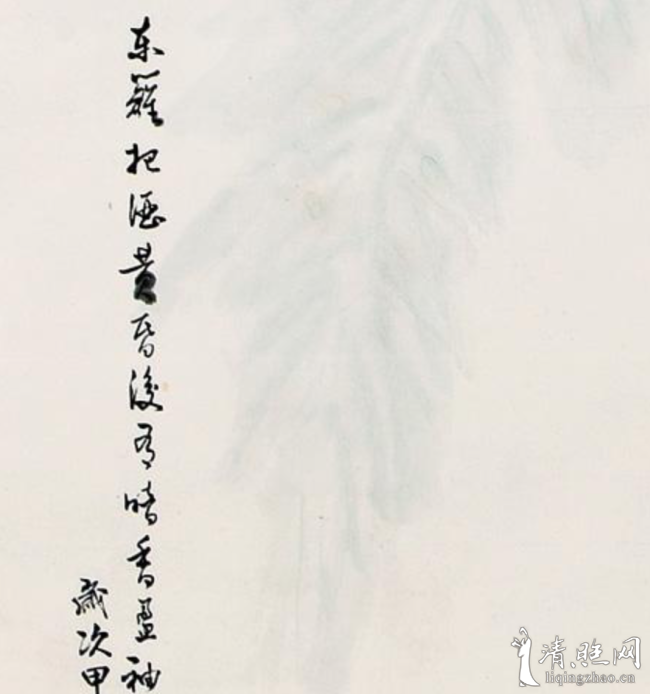 东籬把酒黄昏後有暗香盈袖
歲次甲
清旺网
liqingzhao.cn